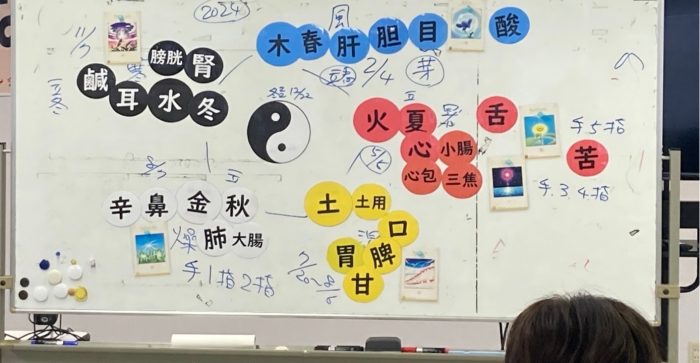 (2024)
風
木 春 肝 胆 目
酸
11/7
寒
膀胱 腎
鹹 耳 水 冬
立冬
2/4
芽
冬至 12/22
火 夏
暑
舌
心 小腸
心包 三焦
5/5
手5指
苦
手3.4指
8/7
辛 鼻 金 秋
燥 肺 大腸
手1指2指
土 土用
口
胃 脾
甘
7/20~8/6